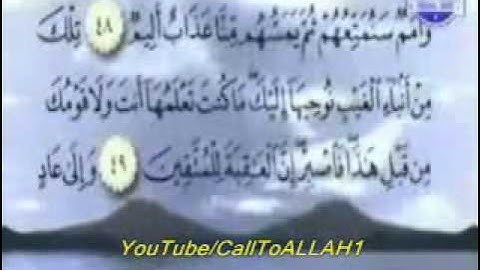 وَأُمَمٌ سَنُمَتِّعُهُمْ ثُمَّ يَمَسُّهُم مِّنَّا عَذَابٌ أَلِيمٌ ٤٨ تِلْكَ
مِنْ أَنۢبَآءِ ٱلْغَيْبِ نُوحِيهَآ إِلَيْكَ ۖ مَا كُنتَ تَعْلَمُهَآ أَنتَ وَلَا قَوْمُكَ
مِن قَبْلِ هَٰذَا ۖ فَٱصْبِرْ ۖ إِنَّ ٱلْعَٰقِبَةَ لِلْمُتَّقِينَ ٤٩ وَإِلَىٰ عَادٍ
YouTube/CallToALLAH1